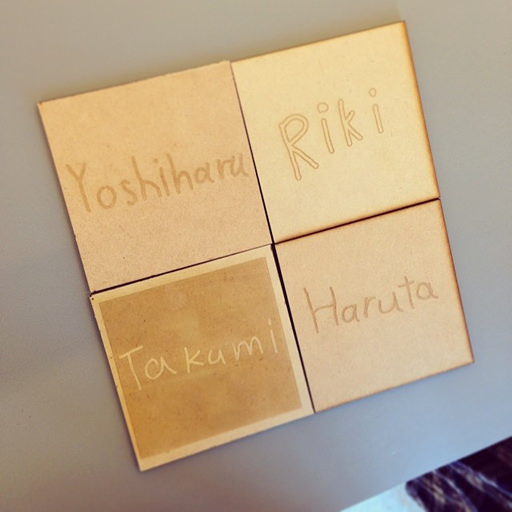 Yoshiharu
Riki
Takami
Haruta